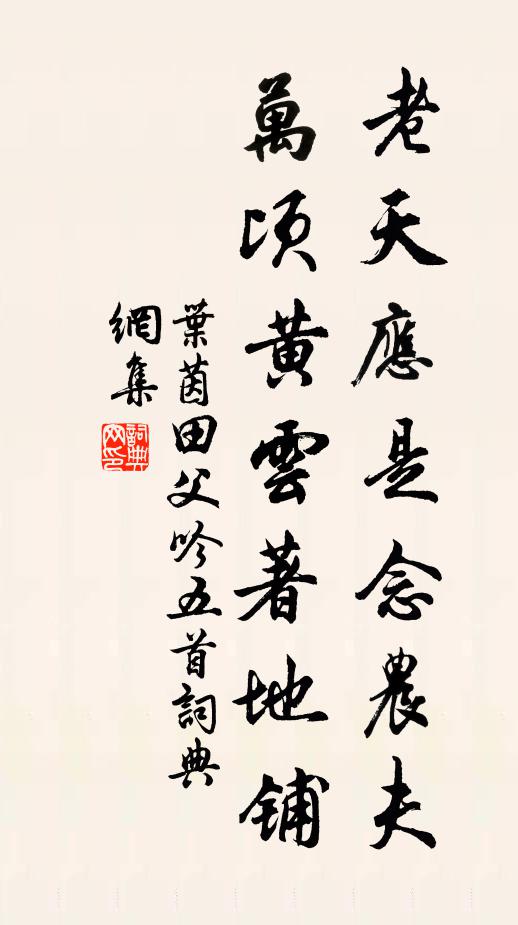 老天應是念農夫
萬頃黃雲著地鋪
葉茵田父吟五首詞典
網集
詞典網印